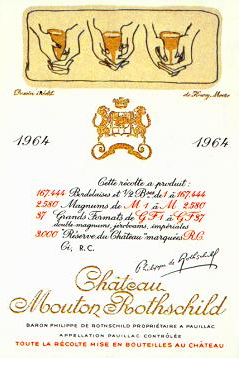 Dessin inédit de Henry Moore
1964 1964
Cette récolte a produit :
167.444 Bordelaises et 1/2 Bses de 1 à 167.444
2.580 Magnums de M 1 à M 2.580
87 Grands Formats de GF1 à GF87
double magnums, jéroboams, impériales
3.000 "Réserve du Château" marquées R.C.
Ci, R.C.
Philippe de Rothschild
Château
Mouton Rothschild
BARON PHILIPPE DE ROTHSCHILD PROPRIÉTAIRE A PAUILLAC
APPELLATION PAUILLAC CONTRÔLÉE
TOUTE LA RÉCOLTE MISE EN BOUTEILLES AU CHÂTEAU